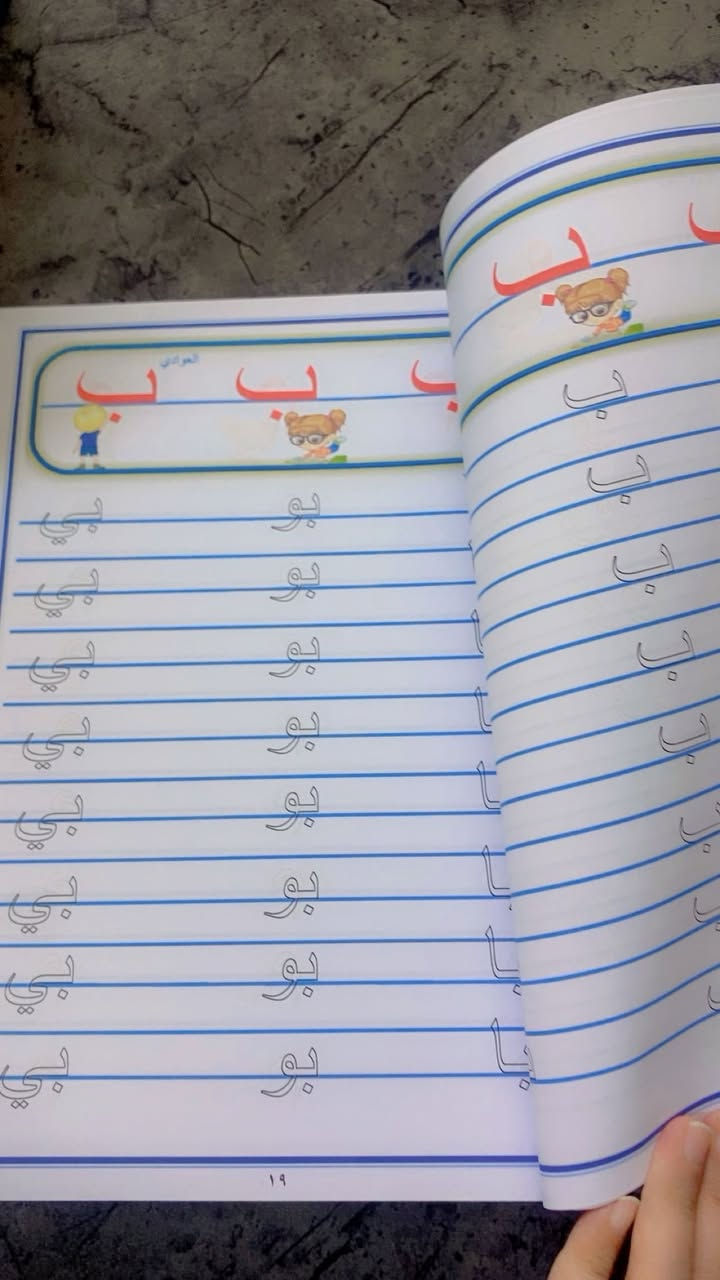 ب ب
ب
ب
ب
ب
ب
ب
ب
ب
ب ب ب
العوادي
بو بي
بو بي
با بو بي
با بو بي
با بو بي
با بو بي
با بو بي
با بو بي
١٩